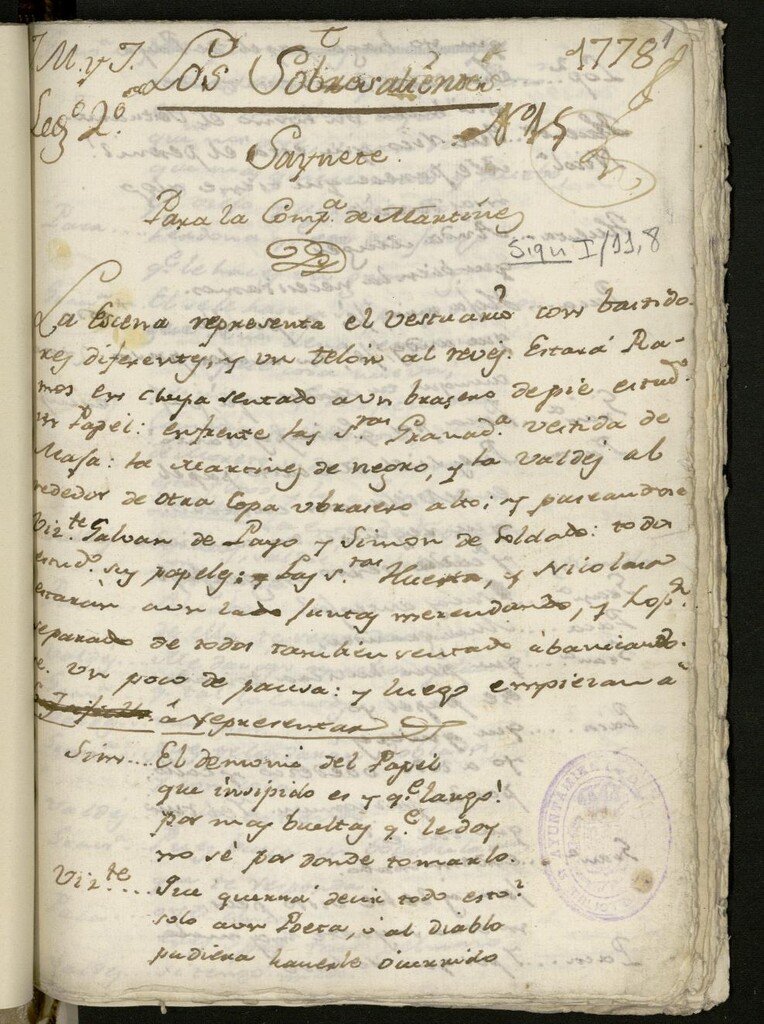 J. M. y J. Los Sobresalientes 1778 1
Leg.º 2.º Nº 15
Saynete.
Para la Comp.ª de Martinez
Sign I/11,8
La Escena representa el vestuario con bastido-
res diferentes, y un telon al reves. Estará Ra-
mos en chupa sentado a un brasero de pie estud.º
un Papel: enfrente las S.ras Granad.ª vestida de
Maja: la Martinez de negro, y la Valdes al
rededor de otra Copa u brasero alto; y paseandose
Viz.te Galvan de Payo y Simon de Soldado: todos
estud.º sus papeles: y Las S.ras Huerta, y Nicolasa
estarán a un lado juntas merendando, y Lop.z
separado de todos tambien sentado abanicando-
se. Un poco de pausa: y luego empiezan á
á representar
Sim... El demonio del Papel
que insipido es y q.e largo!
por mas bueltas q.e le doy
no sé por donde tomarlo.
Viz.te... Que querrá decir todo esto?
solo a un Poeta, ú al diablo
pudiera haverle ocurrido
AYUNTAMIENTO